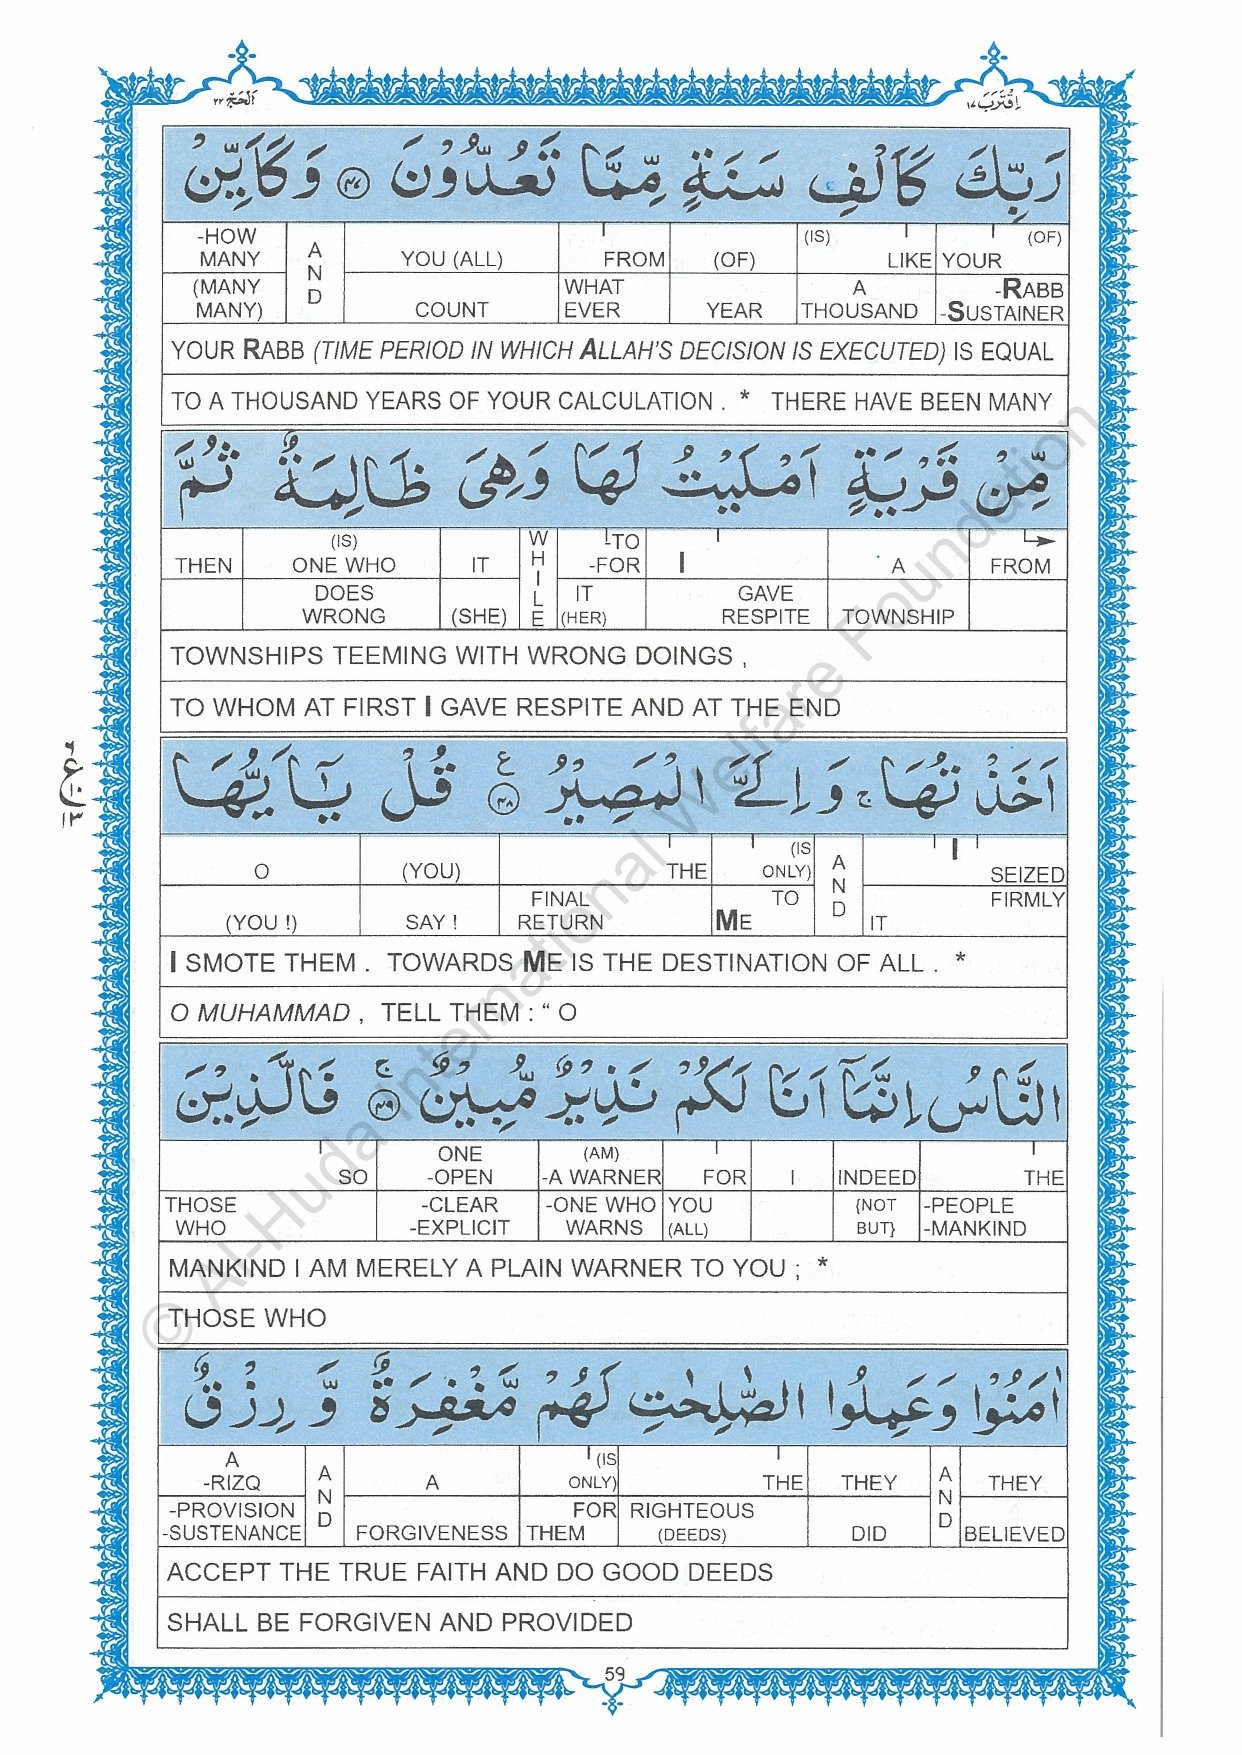 اَلْحَجّ ٢٢
اِقْتَرَبَ ١٧
رَبِّكَ كَاَلْفِ سَنَةٍ مِّمَّا تَعُدُّوْنَ ﴿٤٧﴾ وَكَاَيِّنْ
-HOW AND YOU (ALL) FROM (OF) (IS) LIKE YOUR (OF)
MANY
(MANY MANY) COUNT WHAT EVER YEAR A THOUSAND -RABB -SUSTAINER
YOUR RABB (TIME PERIOD IN WHICH ALLAH'S DECISION IS EXECUTED) IS EQUAL
TO A THOUSAND YEARS OF YOUR CALCULATION . * THERE HAVE BEEN MANY
مِّنْ قَرْيَةٍ اَمْلَيْتُ لَهَا وَهِىَ ظَالِمَةٌ ثُمَّ
THEN (IS) ONE WHO IT WHILE -TO -FOR I A FROM
DOES WRONG (SHE) IT (HER) GAVE RESPITE TOWNSHIP
TOWNSHIPS TEEMING WITH WRONG DOINGS ,
TO WHOM AT FIRST I GAVE RESPITE AND AT THE END
اَخَذْتُهَا ج وَاِلَىَّ الْمَصِيْرُ ﴿٤٨﴾ ع قُلْ يٰۤاَيُّهَا
O (YOU) THE (IS ONLY) AND I SEIZED
(YOU !) SAY ! FINAL RETURN TO ME IT FIRMLY
I SMOTE THEM . TOWARDS ME IS THE DESTINATION OF ALL . *
O MUHAMMAD , TELL THEM : “ O
النَّاسُ اِنَّمَاۤ اَنَا لَكُمْ نَذِيْرٌ مُّبِيْنٌ ﴿٤٩﴾ ج فَالَّذِيْنَ
SO ONE -OPEN (AM) -A WARNER FOR I INDEED THE
THOSE WHO -CLEAR -EXPLICIT -ONE WHO WARNS YOU (ALL) {NOT BUT} -PEOPLE -MANKIND
MANKIND I AM MERELY A PLAIN WARNER TO YOU ; *
THOSE WHO
اٰمَنُوْا وَعَمِلُوا الصّٰلِحٰتِ لَهُمْ مَّغْفِرَةٌ وَّ رِزْقٌ
A -RIZQ AND A (IS ONLY) THE THEY AND THEY
-PROVISION -SUSTENANCE FORGIVENESS FOR THEM RIGHTEOUS (DEEDS) DID BELIEVED
ACCEPT THE TRUE FAITH AND DO GOOD DEEDS
SHALL BE FORGIVEN AND PROVIDED
59
© Al-Huda International Welfare Foundation